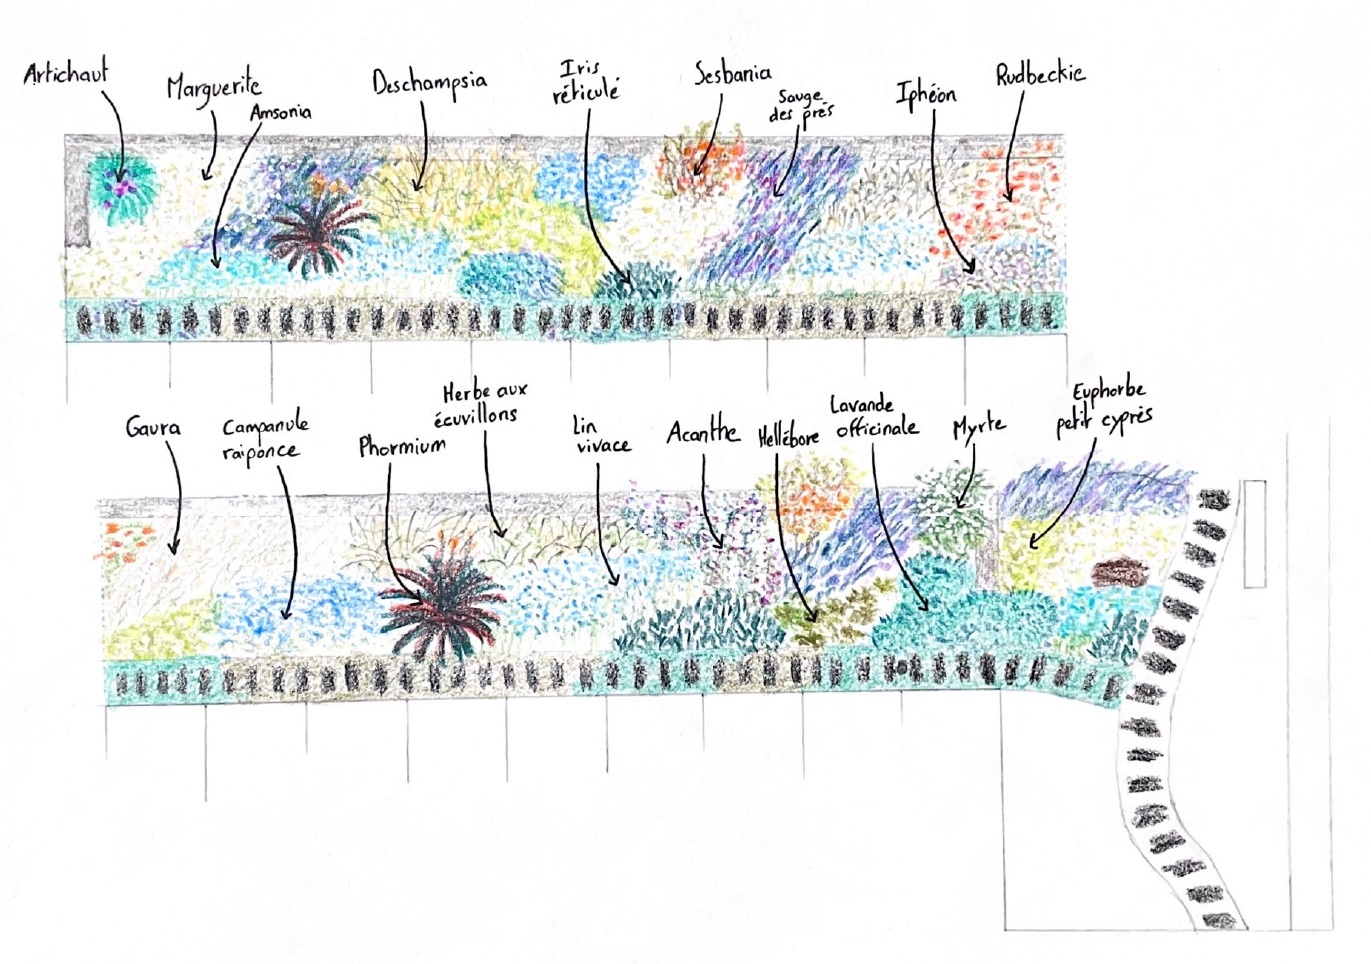 Artichaut
Marguerite
Amsonia
Deschampsia
Iris
réticulé
Sesbania
Sauge
des prés
Iphéon
Rudbeckie
Gaura
Campanule
raiponce
Phormium
Herbe aux
écuvillons
Lin
vivace
Acanthe
Hellébore
Lavande
officinale
Myrte
Euphorbe
petit cyprès